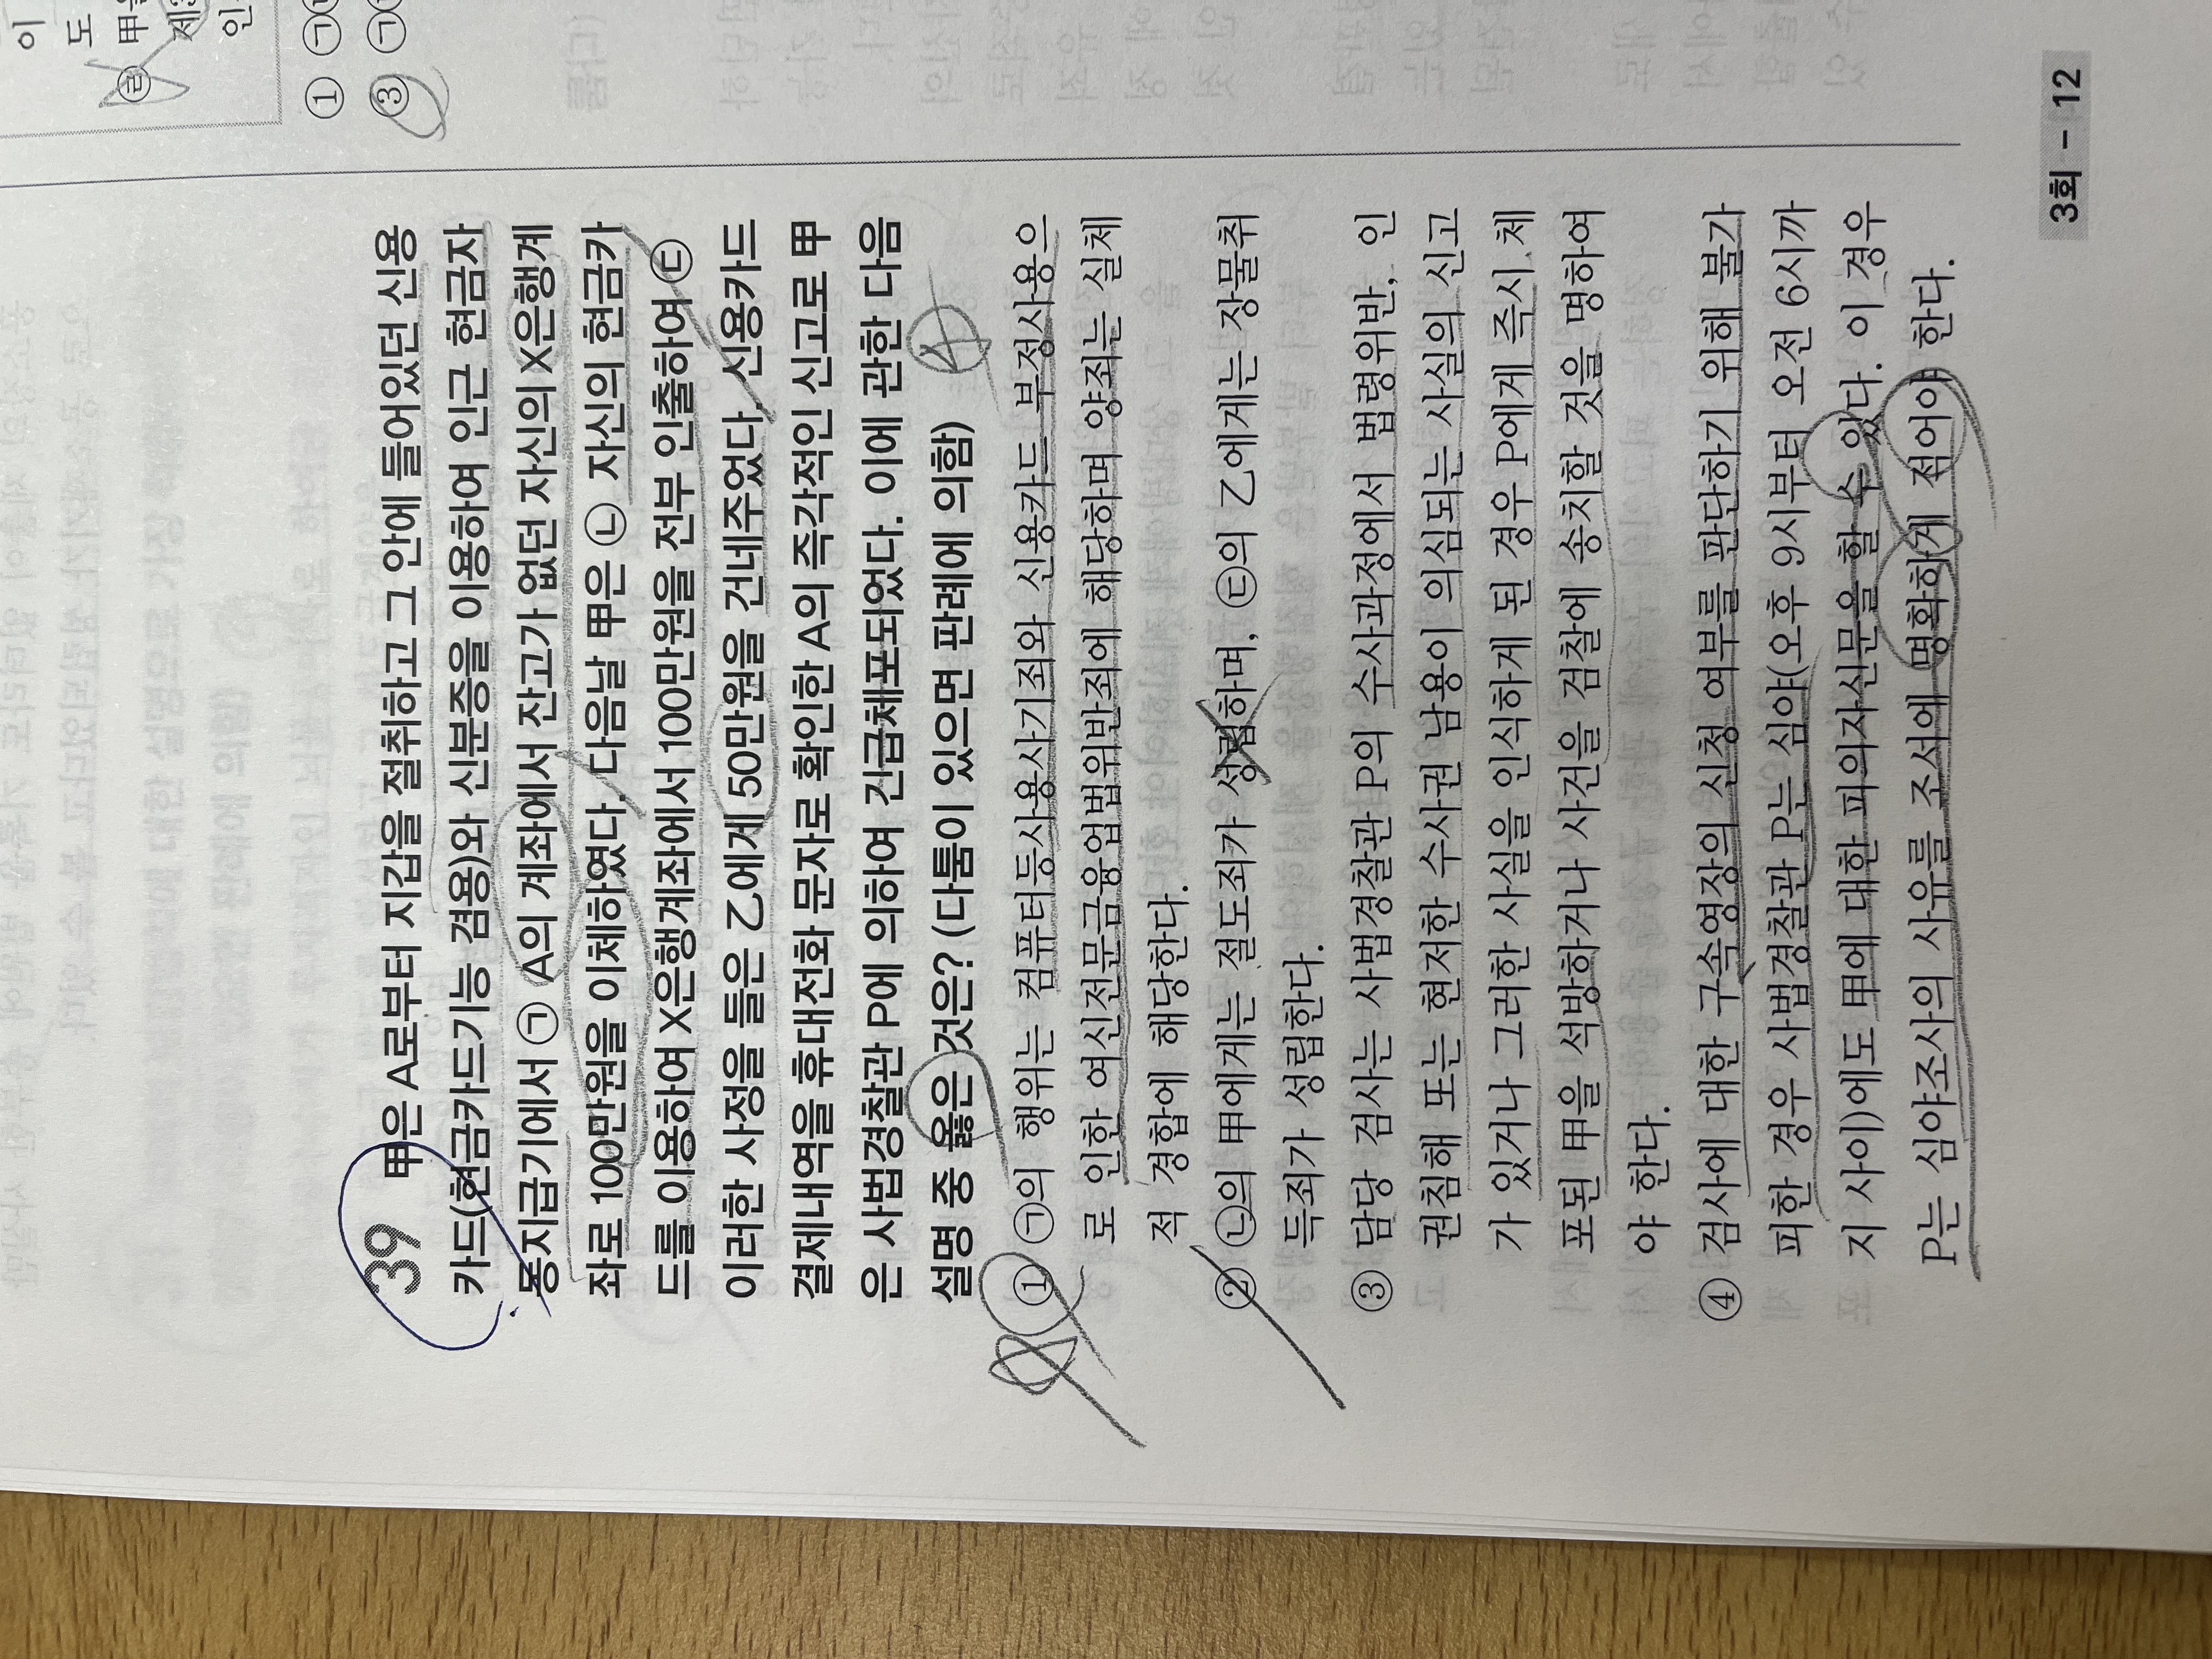 이
도
甲을
㉣ 제3
인
① ㉠
③ ㉠
39 甲은 A로부터 지갑을 절취하고 그 안에 들어있던 신용
카드(현금카드기능 겸용)와 신분증을 이용하여 인근 현금자
동지급기에서 ㉠ A의 계좌에서 잔고가 없던 자신의 X은행계
좌로 100만원을 이체하였다. 다음날 甲은 ㉡ 자신의 현금카
드를 이용하여 X은행계좌에서 100만원을 전부 인출하여 ㉢
이러한 사정을 들은 乙에게 50만원을 건네주었다. 신용카드
결제내역을 휴대전화 문자로 확인한 A의 즉각적인 신고로 甲
은 사법경찰관 P에 의하여 긴급체포되었다. 이에 관한 다음
설명 중 옳은 것은? (다툼이 있으면 판례에 의함) 4
① ㉠의 행위는 컴퓨터등사용사기죄와 신용카드 부정사용으
로 인한 여신전문금융업법위반죄에 해당하며 양죄는 실체
적 경합에 해당한다.
② ㉡의 甲에게는 절도죄가 성립하며, ㉢의 乙에게는 장물취
득죄가 성립한다.
③ 담당 검사는 사법경찰관 P의 수사과정에서 법령위반, 인
권침해 또는 현저한 수사권 남용이 의심되는 사실의 신고
가 있거나 그러한 사실을 인식하게 된 경우 P에게 즉시 체
포된 甲을 석방하거나 사건을 검찰에 송치할 것을 명하여
야 한다.
④ 검사에 대한 구속영장의 신청 여부를 판단하기 위해 불가
피한 경우 사법경찰관 P는 심야(오후 9시부터 오전 6시까
지 사이)에도 甲에 대한 피의자신문을 할 수 있다. 이 경우
P는 심야조사의 사유를 조서에 명확하게 적어야 한다.
3회 - 12